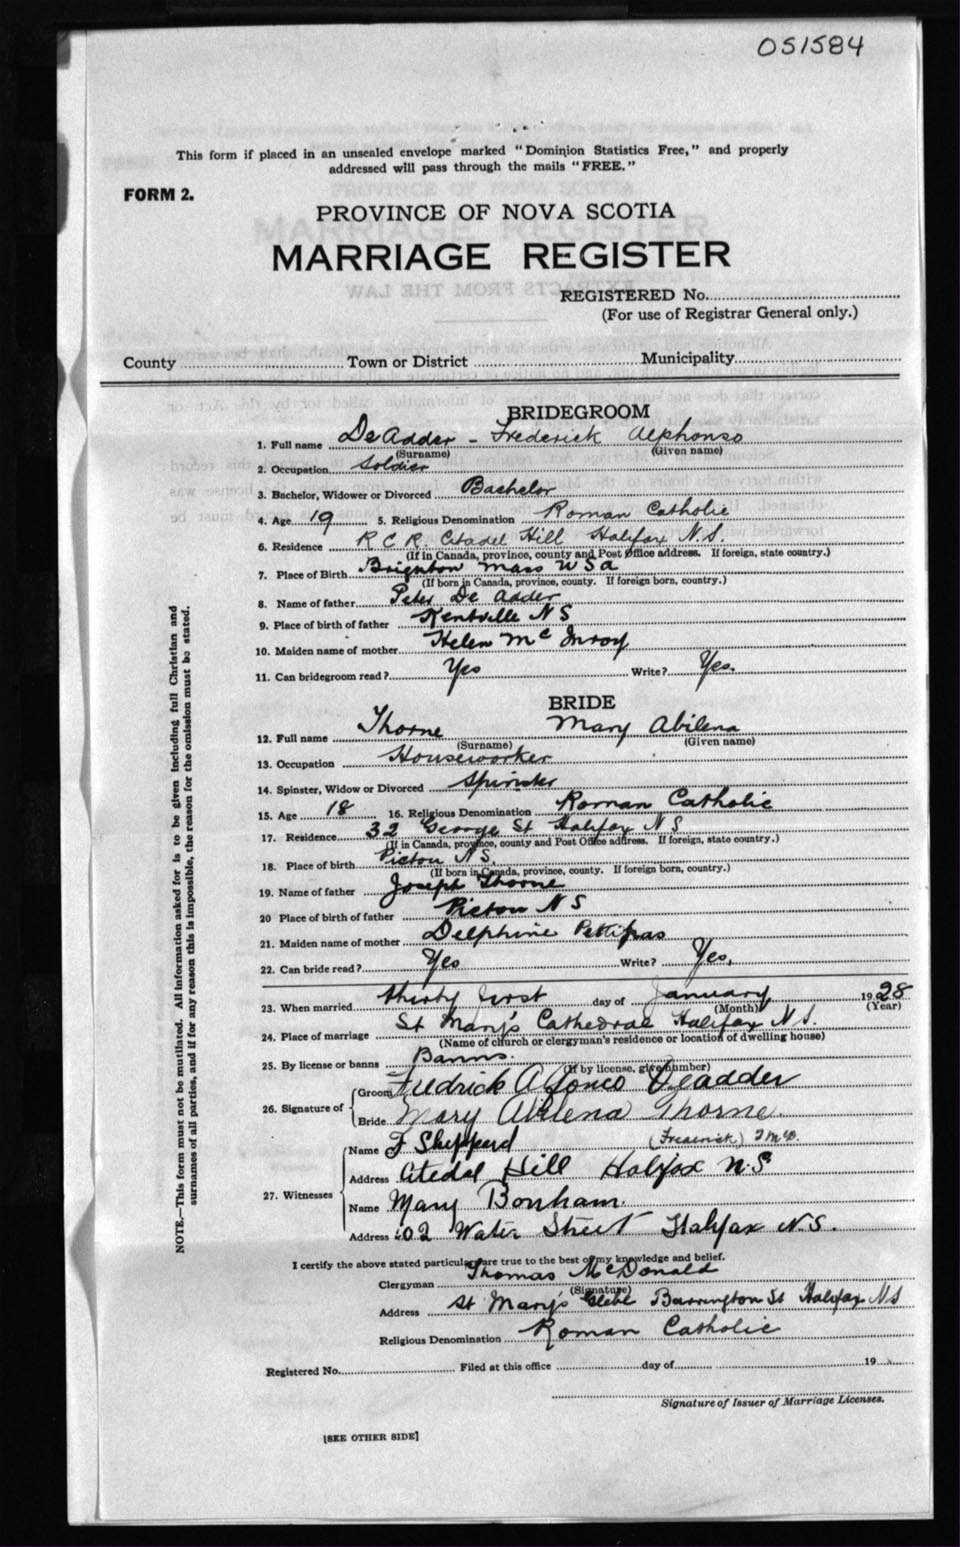 051584
This form if placed in an unsealed envelope marked "Dominion Statistics Free," and properly
addressed will pass through the mails "FREE."
FORM 2.
PROVINCE OF NOVA SCOTIA
MARRIAGE REGISTER
REGISTERED No.
(For use of Registrar General only.)
County Town or District Municipality
BRIDEGROOM
1. Full name DeAdder - Frederick Alphonso
(Surname) (Given name)
2. Occupation Soldier
3. Bachelor, Widower or Divorced Bachelor
4. Age 19 5. Religious Denomination Roman Catholic
6. Residence R C R. Citadel Hill Halifax N.S.
(If in Canada, province, county and Post Office address. If foreign, state country.)
7. Place of Birth Brighton Mass USA
(If born in Canada, province, county. If foreign born, country.)
8. Name of father Peter De Adder
9. Place of birth of father Kentville N S
10. Maiden name of mother Helen Mc Inroy
11. Can bridegroom read? Yes Write? Yes.
BRIDE
12. Full name Thorne Mary Abilena
(Surname) (Given name)
13. Occupation Houseworker
14. Spinster, Widow or Divorced Spinster
15. Age 18 16. Religious Denomination Roman Catholic
17. Residence 32 George St Halifax N S
(If in Canada, province, county and Post Office address. If foreign, state country.)
18. Place of birth Pictou N S.
(If born in Canada, province, county. If foreign born, country.)
19. Name of father Joseph Thorne
20 Place of birth of father Pictou N S
21. Maiden name of mother Delphine Pettipas
22. Can bride read? Yes Write? Yes.
23. When married thirty first day of January 1928
(Month) (Year)
24. Place of marriage St Mary's Cathedral Halifax N S.
(Name of church or clergyman's residence or location of dwelling house)
25. By license or banns Banns.
(If by license, give number)
26. Signature of Groom Fredrick Alfonco Deadder
Bride Mary Abilena Thorne.
27. Witnesses Name F Sheppard (Frederick)
Address Citedal Hill Halifax N.S
Name Mary Bonham.
Address 102 Water Street Halifax N.S.
I certify the above stated particulars are true to the best of my knowledge and belief.
Clergyman Thomas McDonald
(Signature)
Address St Mary's Glebe Barrington St Halifax N S
Religious Denomination Roman Catholic
Registered No. Filed at this office day of 19
Signature of Issuer of Marriage Licenses.
[SEE OTHER SIDE]
NOTE.—This form must not be mutilated. All information asked for is to be given including full Christian and
surnames of all parties, and if for any reason this is impossible, the reason for the omission must be stated.